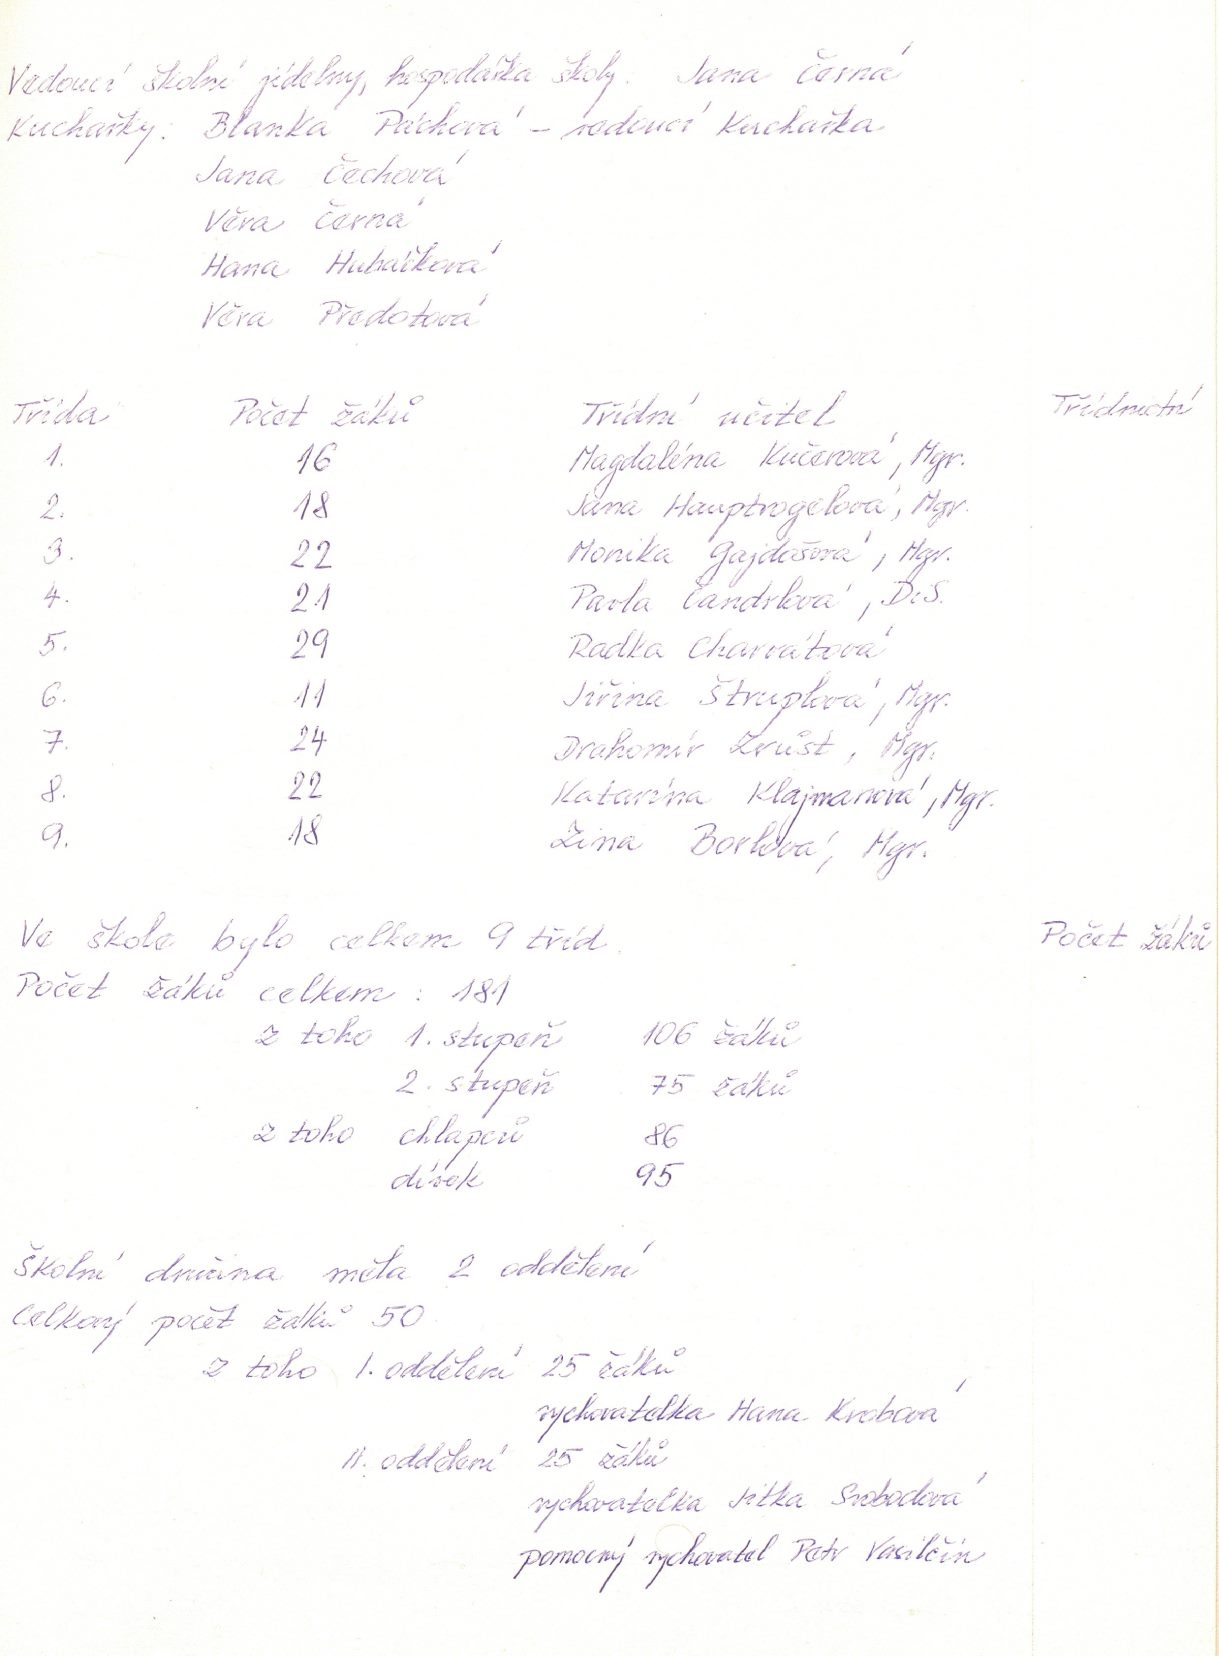 Vedoucí školní jídelny, hospodářka školy: Jana Černá
Kuchařky: Blanka Páchová – vedoucí kuchařka
Jana Čechová
Věra Černá
Hana Hubáčková
Věra Předotová
Třída Počet žáků Třídní učitel Třídnictví
1. 16 Magdaléna Kučerová, Mgr.
2. 18 Jana Hauptvogelová, Mgr.
3. 22 Monika Gajdošová, Mgr.
4. 21 Pavla Čandrlová, DiS.
5. 29 Radka Charvátová
6. 11 Jiřina Štruplová, Mgr.
7. 24 Drahomír Zrůst, Mgr.
8. 22 Katarína Klajmanová, Mgr.
9. 18 Zina Borlová, Mgr.
Ve škole bylo celkem 9 tříd. Počet žáků
Počet žáků celkem: 181
z toho 1. stupeň 106 žáků
2. stupeň 75 žáků
z toho chlapců 86
dívek 95
Školní družina měla 2 oddělení
Celkový počet žáků 50
z toho I. oddělení 25 žáků
vychovatelka Hana Krobová
II. oddělení 25 žáků
vychovatelka Jitka Svobodová
pomocný vychovatel Petr Vasilčin